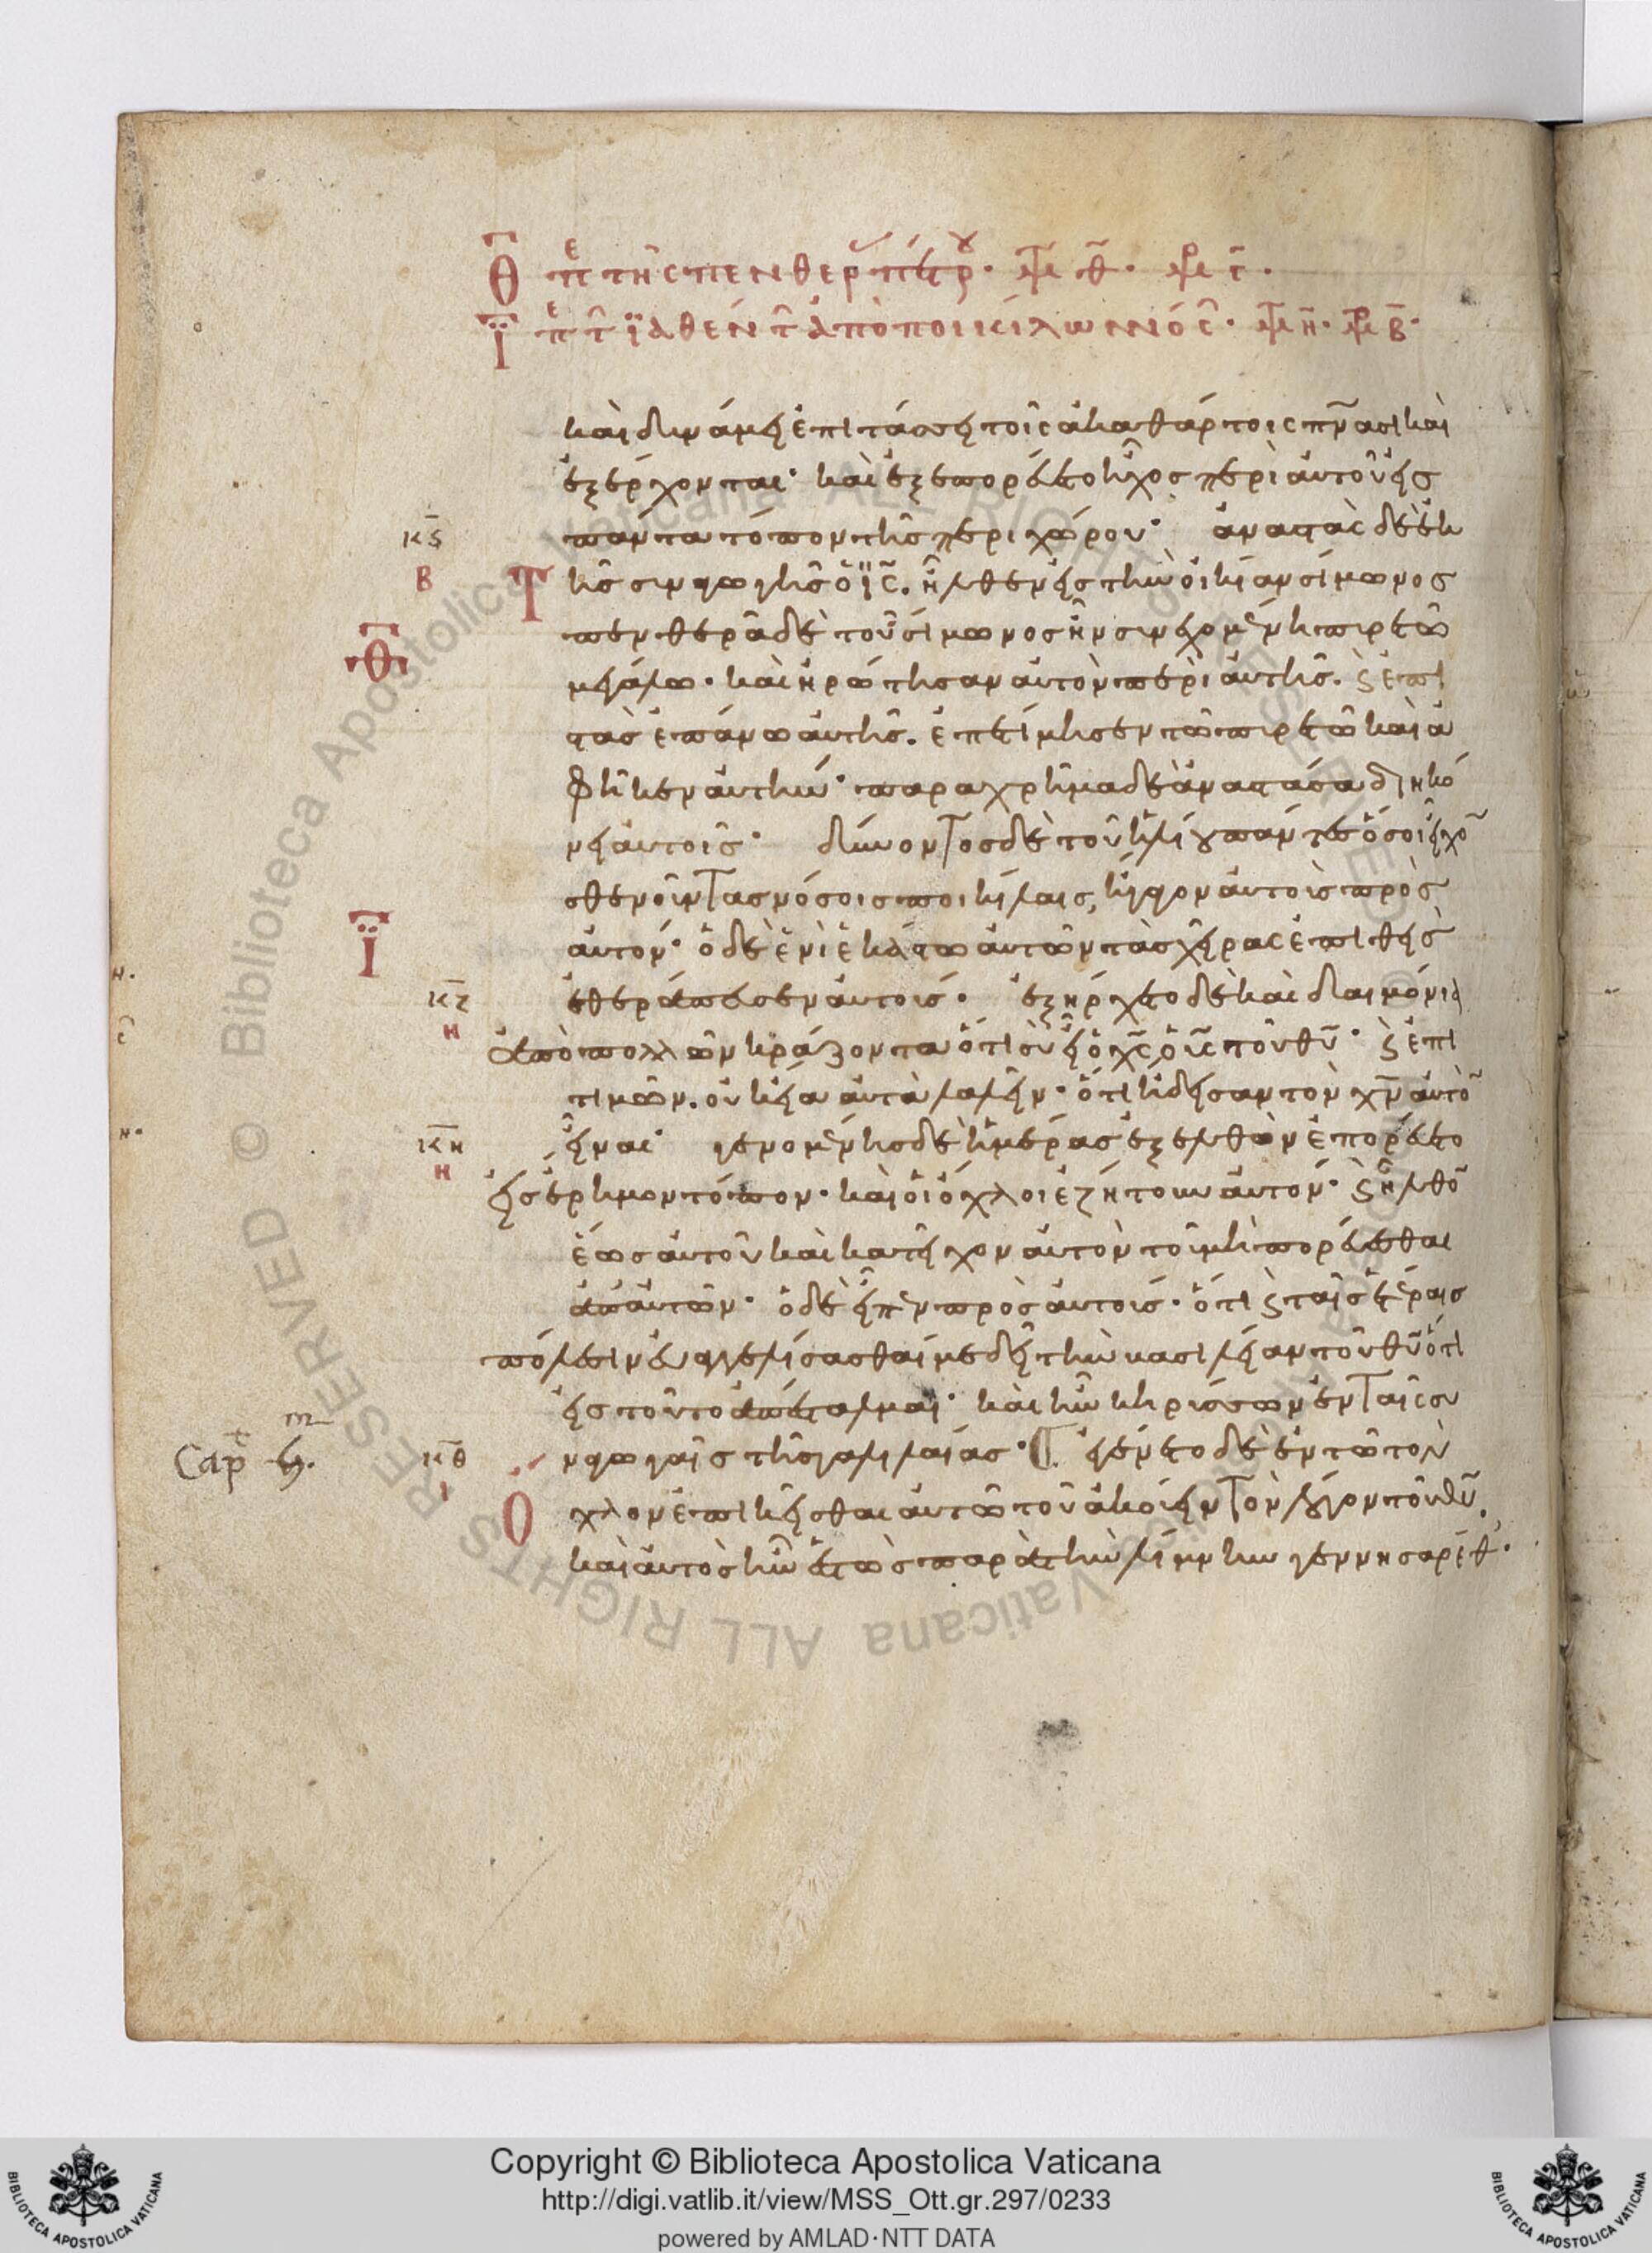 Θ πε τῆς πενθερᾶς πέτρου· Μ θ· Μρ γ·
Ϊ πε τ ἰαθέντ ἀπὸ ποικίλων νόσ· Μ η· Μρ β·
καὶ δυνάμει ἐπιτάσσει τοῖς ἀκαθάρτοις πν̅ασι καὶ
ἐξέρχονται· καὶ ἐξεπορεύετο ἦχος περὶ αὐτοῦ εἰς
κϛ πάντα τόπον τῆς περιχώρου· ἀναστὰς δὲ ἐκ
Β Τ τῆς συναγωγῆς ὁ ι̅ς̅. ἦλθεν εἰς τὴν οἰκίαν σίμωνος
Θ πενθερὰ δὲ τοῦ σίμωνος ἦν συνεχομένη πυρετῶ
μεγάλω· καὶ ἠρώτησαν αὐτὸν περὶ αὐτῆς. ϗ ἐπι
στὰς ἐπάνω αὐτῆς. ἐπετίμησεν τῶ πυρετῶ καὶ ἀ
φῆκεν αὐτήν· παραχρῆμα δὲ ἀναστᾶσα διηκό
νει αὐτοῖς· δύνοντος δὲ τοῦ ἡλίου πάντες ὅσοι εἶχο̅
ἀσθενοῦντας νόσοις ποικίλαις, ἤγαγον αὐτοὺς πρὸς
Ϊ αὐτόν· ὁ δὲ ἑνὶ ἑκάστω αὐτῶν τὰς χεῖρας ἐπιθεὶς
κζ ἐθεράπευσεν αὐτούς· ἐξήρχετο δὲ καὶ δαιμόνια
η ἀπὸ πολλῶν κράζοντα ὅτι σὺ εἶ ὁ χ̅ς̅ ὁ υ̅ς̅ τοῦ θ̅υ̅· ϗ ἐπι
τιμῶν. οὐκ εἴα αὐτὰ λαλεῖν· ὅτι ᾔδεισαν τὸν χ̅ν̅ αὐτὸ̅
κη εἶναι· γενομένης δὲ ἡμέρας ἐξελθὼν ἐπορεύετο
η εἰς ἔρημον τόπον· καὶ οἱ ὄχλοι ἐζήτουν αὐτόν· ϗ ἦλθο̅
ἕως αὐτοῦ καὶ κατεῖχον αὐτὸν τοῦ μὴ πορεύεσθαι
ἀπ αὐτῶν· ὁ δὲ εἶπεν πρὸς αὐτούς· ὅτι ϗ ταῖς ἑτέραις
πόλεσιν εὐαγγελίσασθαί με δεῖ τὴν βασιλείαν τοῦ θ̅υ̅ ὅτι
εἰς τοῦτο ἀπέσταλμαι· καὶ ἦν κηρύσσων ἐν ταῖς συ
Cap m 5. κθ ναγωγαῖς τῆς γαλιλαίας· ἐγένετο δὲ ἐν τῶ τὸν
ι Ο χλον ἐπικεῖσθαι αὐτῶ τοῦ ἀκούειν τὸν λόγον τοῦ θ̅υ̅.
καὶ αὐτὸς ἦν ἑστὼς παρὰ τὴν λίμνην γεννησαρέθ·
Copyright © Biblioteca Apostolica Vaticana
http://digi.vatlib.it/view/MSS_Ott.gr.297/0233
powered by AMLAD·NTT DATA